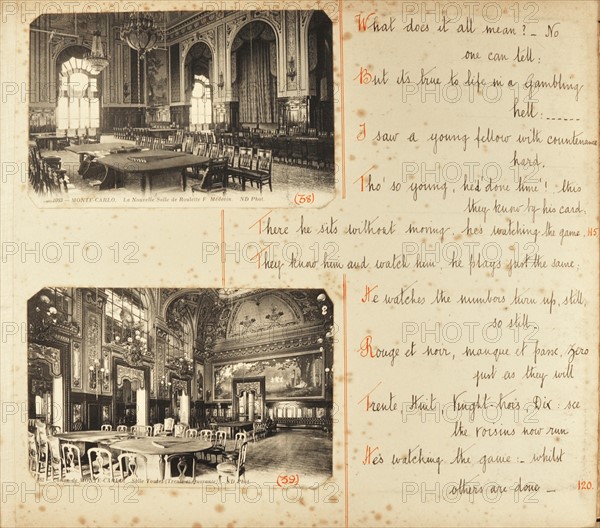 What does it all mean? - No
one can tell:
But it's true to life in a Gambling
hell: ______
I saw a young fellow with countenance
hard,
Tho' so young, he'd 'done time'! this
they know by his card,
There he sits without moving - he's watching the game, 115
They know him and watch him, he plays just the same;
He watches the numbers turn up, still,
so still -
Rouge et noir, manque et passe, Zero
just as they will
Trente, Huit, Vinght-trois, Dix: see
the voisins now run
He's watching the game: - whilst
others are done - 120.
MONTE-CARLO. La Nouvelle Salle de Roulette F. Médecin. ND Phot.
(38)
MONTE-CARLO. Salle Touzet (Trente et Quarante). ND Phot.
(39)